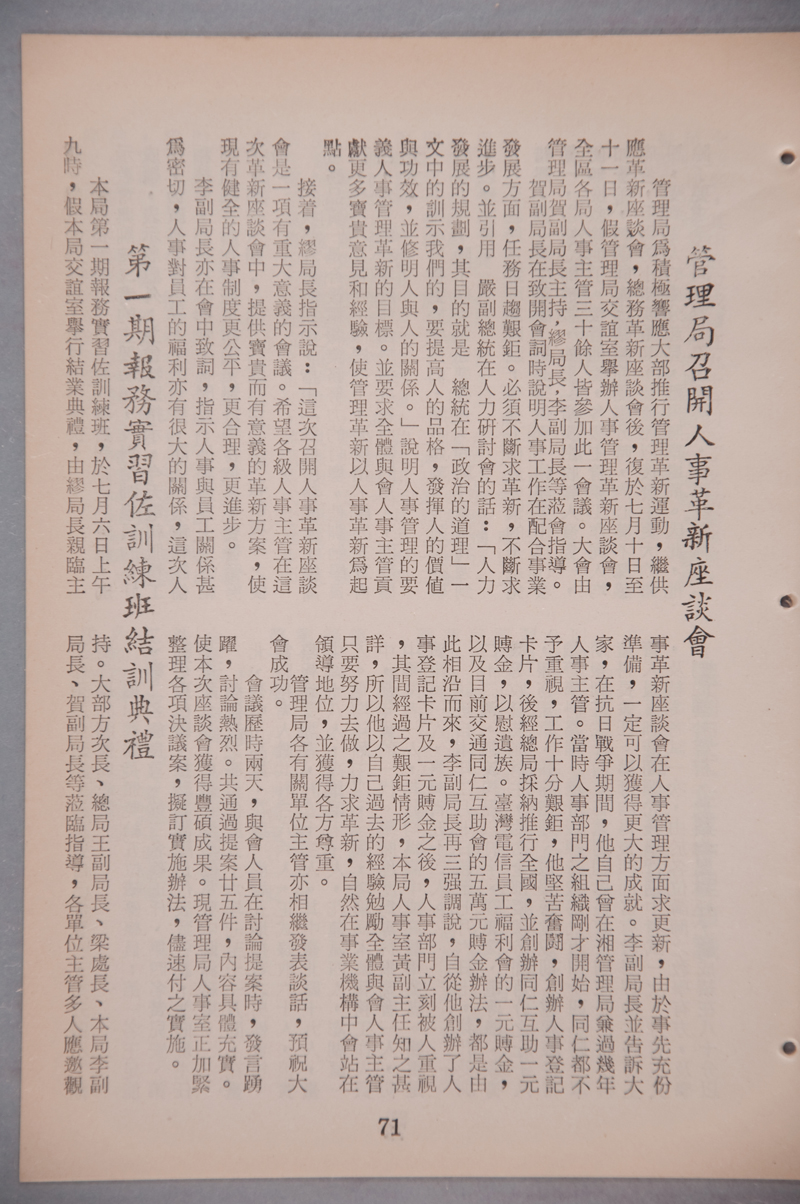 管理局召開人事革新座談會
管理局為積極響應大部推行管理革新運動，繼供
應革新座談會，總務革新座談會後，復於七月十日至
十一日，假管理局交誼室舉辦人事管理革新座談會，
全區各局人事主管三十餘人皆參加此一會議。大會由
管理局賀副局長主持，繆局長，李副局長等蒞會指導。
賀副局長在致開會詞時說明人事工作在配合事業
發展方面，任務日趨艱鉅。必須不斷求革新，不斷求
進步。並引用　嚴副總統在人力研討會的話：「人力
發展的規劃，其目的就是　總統在「政治的道理」一
文中的訓示我們的，要提高人的品格，發揮人的價值
與功效，並修明人與人的關係。」說明人事管理的要
義人事管理革新的目標。並要求全體與會人事主管貢
獻更多寶貴意見和經驗，使管理革新以人事革新為起
點。
接着，繆局長指示說：「這次召開人事革新座談
會是一項有重大意義的會議。希望各級人事主管在這
次革新座談會中，提供寶貴而有意義的革新方案，使
現有健全的人事制度更公平，更合理，更進步。
李副局長亦在會中致詞，指示人事與員工關係甚
為密切，人事對員工的福利亦有很大的關係，這次人
事革新座談會在人事管理方面求更新，由於事先充份
準備，一定可以獲得更大的成就。李副局長並告訴大
家，在抗日戰爭期間，他自己曾在湘管理局兼過幾年
人事主管。當時人事部門之組織剛才開始，同仁都不
予重視，工作十分艱鉅，他堅苦奮鬪，創辦人事登記
卡片，後經總局採納推行全國，並創辦同仁互助一元
賻金，以慰遺族。臺灣電信員工福利會的一元賻金，
以及目前交通同仁互助會的五萬元賻金辦法，都是由
此相沿而來，李副局長再三强調說，自從他創辦了人
事登記卡片及一元賻金之後，人事部門立刻被人重視
，其間經過之艱鉅情形，本局人事室黃副主任知之甚
詳，所以他以自己過去的經驗勉勵全體與會人事主管
只要努力去做，力求革新，自然在事業機構中會站在
領導地位，並獲得各方尊重。
管理局各有關單位主管亦相繼發表談話，預祝大
會成功。
會議歷時兩天，與會人員在討論提案時，發言踴
躍，討論熱烈。共通過提案廿五件，內容具體充實。
使本次座談會獲得豐碩成果。現管理局人事室正加緊
整理各項決議案，擬訂實施辦法，儘速付之實施。
第一期報務實習佐訓練班結訓典禮
本局第一期報務實習佐訓練班，於七月六日上午
九時，假本局交誼室舉行結業典禮，由繆局長親臨主
持。大部方次長、總局王副局長、梁處長、本局李副
局長、賀副局長等蒞臨指導，各單位主管多人應邀觀
71